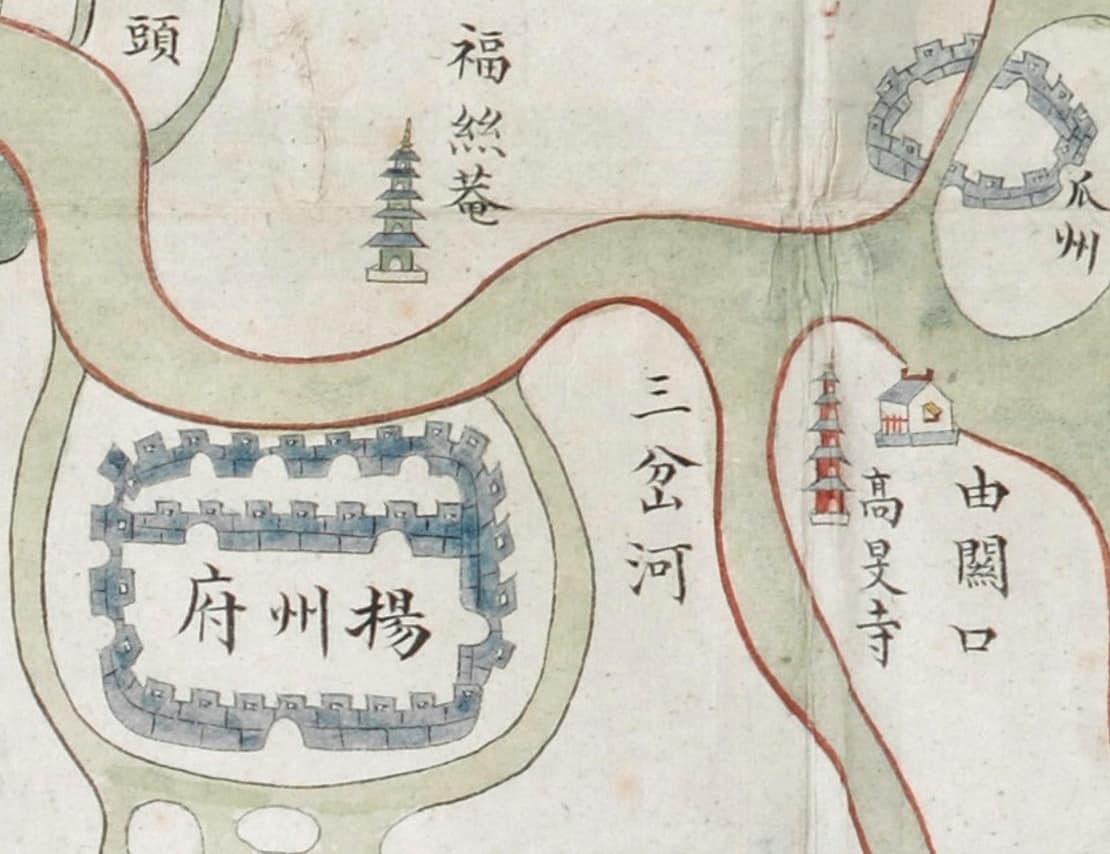 瓜州
由關口
高旻寺
三岔河
福絲菴
頭
楊州府